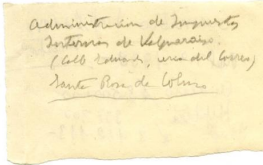 Administracion de Impuestos
Internos de Valparaiso.
(Calle        , cerca del Correo)
Santa Rosa de Colmo